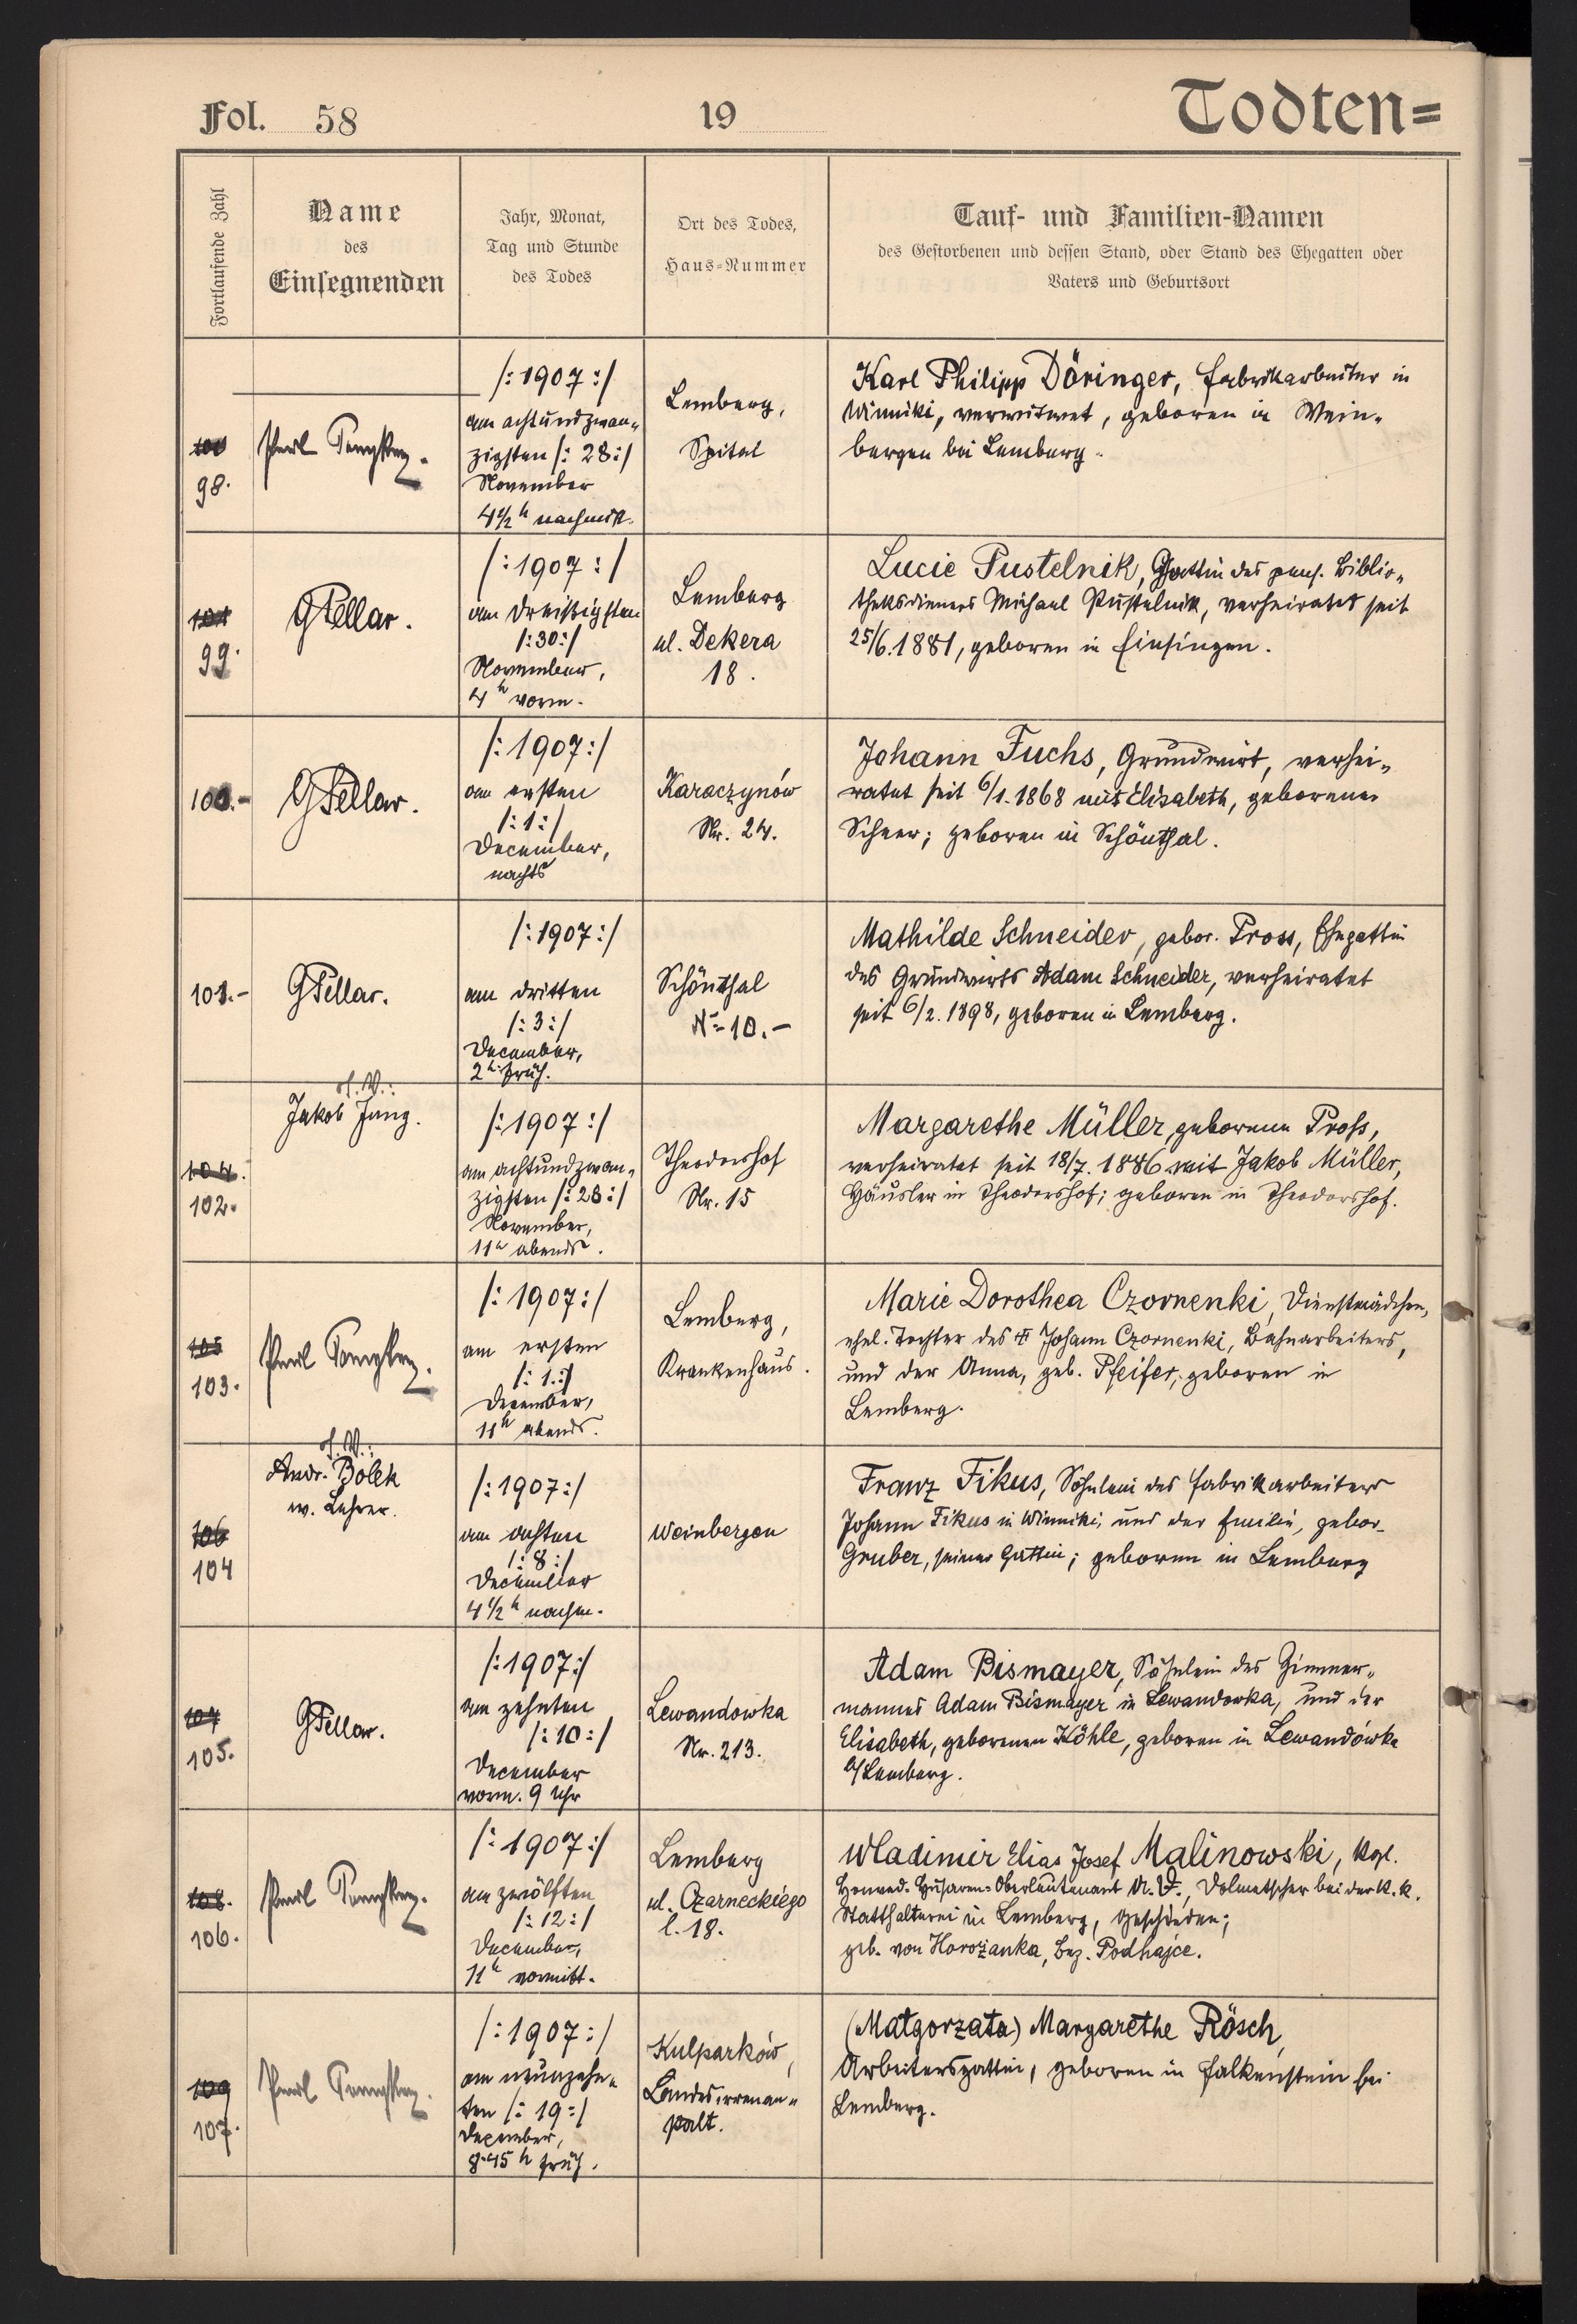 Fol. 58
19
Todten=
Fortlaufende Zahl
Name
des
Einsegnenden
Jahr, Monat,
Tag und Stunde
des Todes
Ort des Todes,
Haus-Nummer
Tauf- und Familien-Namen
des Gestorbenen und dessen Stand, oder Stand des Ehegatten oder
Vaters und Geburtsort
100
98.
/: 1907 :/
am achtundzwan-
zigsten /: 28 :/
November
4 1/2 h nachmitt.
Lemberg,
Spital
Karl Philipp Döringer, Fabrikarbeiter in
Winniki, verwitwet, geboren in Wein-
bergen bei Lemberg.
101
99.
GKellar.
/: 1907 :/
am dreißigsten
/: 30 :/
November,
4 h vorm.
Lemberg
ul. Dekera
18.
Lucie Pustelnik, Gattin des pens. Biblio-
theksdieners Michael Pustelnik, verheiratet seit
25/6. 1881, geboren in Einsingen.
100.-
GKellar.
/: 1907 :/
am ersten
/: 1 :/
December,
nachts
Karaczynów
Nr. 24.
Johann Fuchs, Grundwirt, verhei-
ratet seit 6/1. 1868 mit Elisabeth, geborener
Scheer; geboren in Schönthal.
101.-
GKellar.
/: 1907 :/
am dritten
/: 3 :/
December,
2 h früh.
Schönthal
No 10.-
Mathilde Schneider, gebor. Pross, Ehegattin
des Grundwirts Adam Schneider, verheiratet
seit 6/2. 1898, geboren in Lemberg.
104.
102.
Jakob Jung.
/: 1907 :/
am achtundzwan-
zigsten /: 28 :/
November,
11 h abends.
Theodorshof
Nr. 15
Margarethe Müller, geborene Proß,
verheiratet seit 18/7. 1886 mit Jakob Müller,
Häusler in Theodorshof; geboren in Theodorshof.
105
103.
/: 1907 :/
am ersten
/: 1. :/
December,
11 h abends.
Lemberg,
Krankenhaus.
Marie Dorothea Czornenki, Dienstmädchen,
ehel. Tochter des Johann Czornenki, Bahnarbeiters,
und der Anna, geb. Pfeifer, geboren in
Lemberg.
106
104
Andr. Bolek
w. Lehrer.
/: 1907 :/
am achten
/: 8 :/
December
4 1/2 h nachm.
Weinbergen
Franz Fikus, Söhnlein des Fabrikarbeiters
Johann Fikus in Winniki, und der Emilie, gebor.
Gruber, seiner Gattin; geboren in Lemberg
107
105.
GKellar.
/: 1907 :/
am zehnten
/: 10 :/
December
vorm. 9 Uhr
Lewandowka
Nr. 213.
Adam Bismayer, Söhnlein des Zimmer-
mannes Adam Bismayer in Lewandowka, und der
Elisabeth, geborenen Köhle, geboren in Lewandówka
b/Lemberg.
108.
106.
/: 1907 :/
am zwölften
/: 12 :/
December,
11 h vormitt.
Lemberg
ul. Czarneckiego
l. 18.
Wladimir Elias Josef Malinowski, kgl.
Honved-Husaren-Oberleutenant a. D., Dolmetscher bei der k.k.
Statthalterei in Lemberg, geschieden;
geb. von Horożanka, Bez. Podhajce.
109
107.
/: 1907 :/
am neunzehn-
ten /: 19 :/
December,
8.45 h früh.
Kulparków,
Landesirrenan-
stalt.
(Małgorzata) Margarethe Rösch,
Arbeitersgattin, geboren in Falkenstein bei
Lemberg.